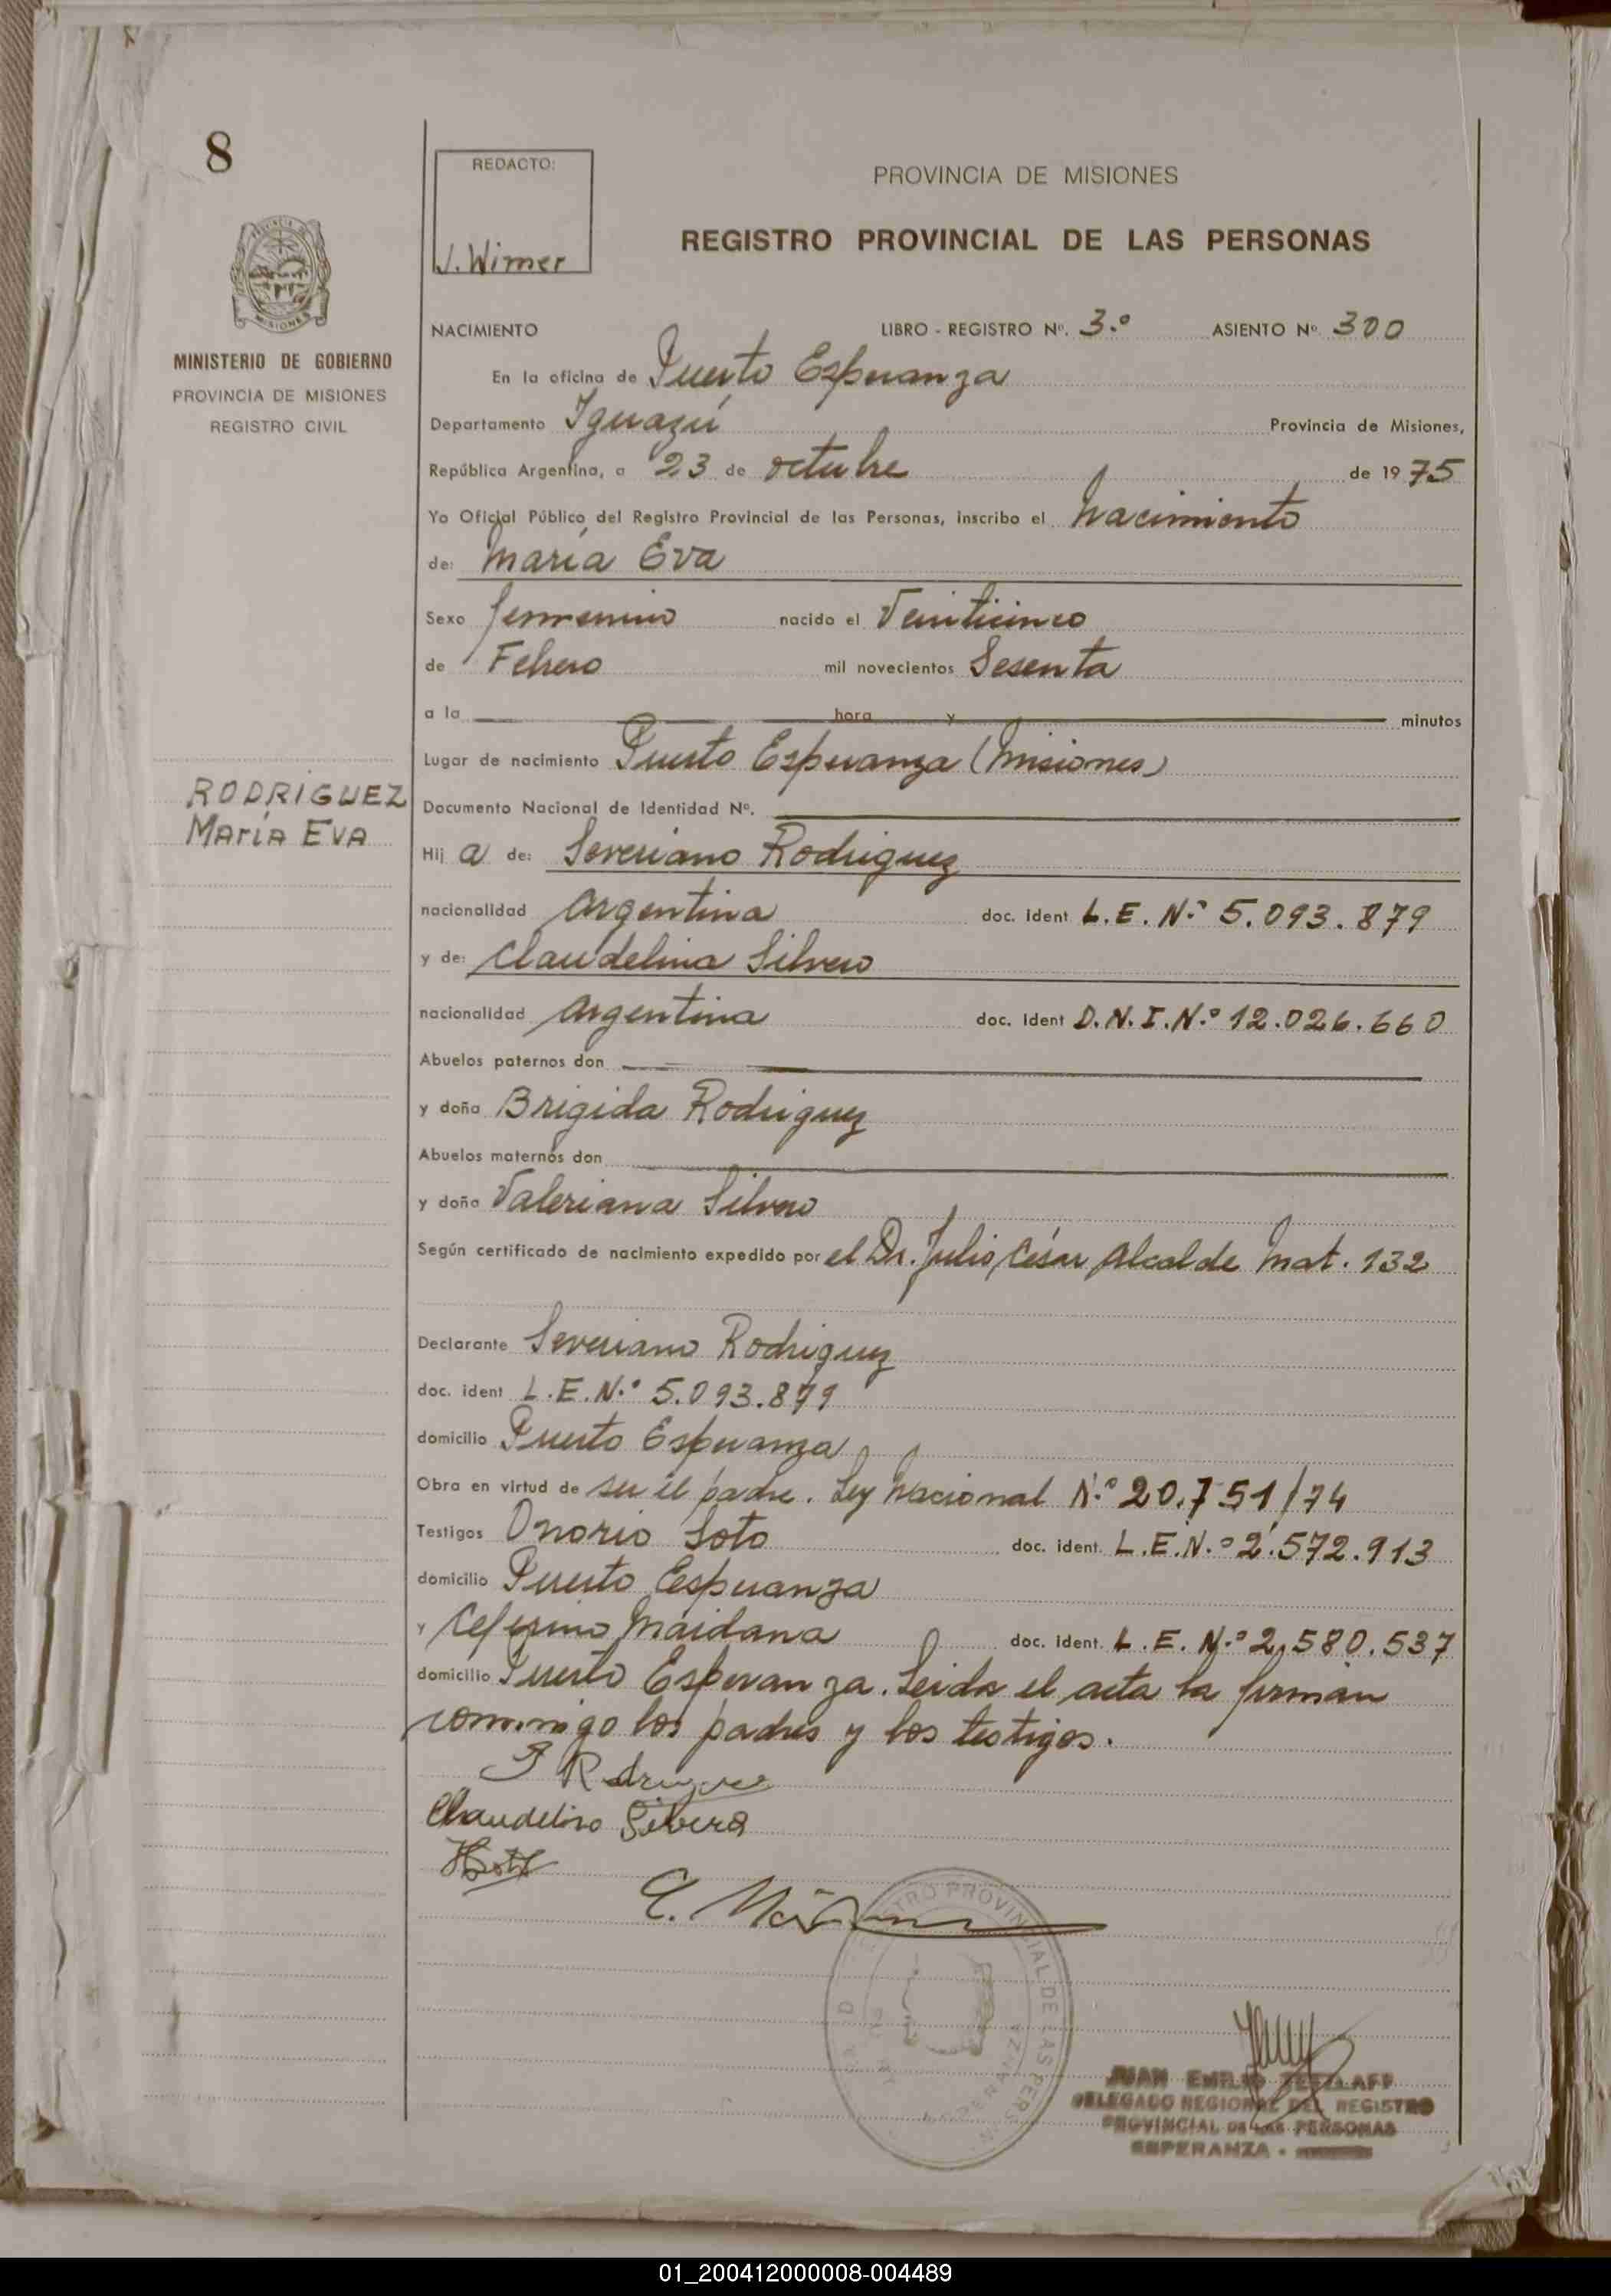 8
REDACTO:
J. Wimer
PROVINCIA DE MISIONES
REGISTRO PROVINCIAL DE LAS PERSONAS
MISIONES
MINISTERIO DE GOBIERNO
PROVINCIA DE MISIONES
REGISTRO CIVIL
NACIMIENTO LIBRO - REGISTRO Nº. 3.º ASIENTO Nº. 300
En la oficina de Puerto Esperanza
Departamento Iguazú Provincia de Misiones,
República Argentina, a 23 de octubre de 1975
Yo Oficial Público del Registro Provincial de las Personas, inscribo el Nacimiento
de: María Eva
Sexo femenino nacido el Veinticinco
de Febrero mil novecientos Sesenta
a la hora y minutos
Lugar de nacimiento Puerto Esperanza (Misiones)
RODRIGUEZ
María EVA
Documento Nacional de Identidad Nº.
Hij a de: Severiano Rodriguez
nacionalidad argentina doc. ident L.E. N.º 5.093.879
y de: Claudelina Silvero
nacionalidad argentina doc. ident D.N.I. N.º 12.026.660
Abuelos paternos don
y doña Brigida Rodriguez
Abuelos maternos don
y doña Valeriana Silvero
Según certificado de nacimiento expedido por el Dr. Julio César Alcalde Mat. 132
Declarante Severiano Rodriguez
doc. ident L.E. N.º 5.093.879
domicilio Puerto Esperanza
Obra en virtud de ser el padre. Ley Nacional N.º 20.751/74
Testigos Onorio Soto doc. ident. L.E. N.º 2.572.913
domicilio Puerto Esperanza
y Ceferino Maidana doc. ident. L.E. N.º 2.580.537
domicilio Puerto Esperanza. Leida el acta la firman
conmigo los padres y los testigos.
S Rodriguez
Claudelino Silvera
REGISTRO PROVINCIAL DE LAS PERSON
JUAN EMILIO TETZLAFF
DELEGADO REGIONAL DEL REGISTRO
PROVINCIAL DE LAS PERSONAS
ESPERANZA -
01_200412000008-004489